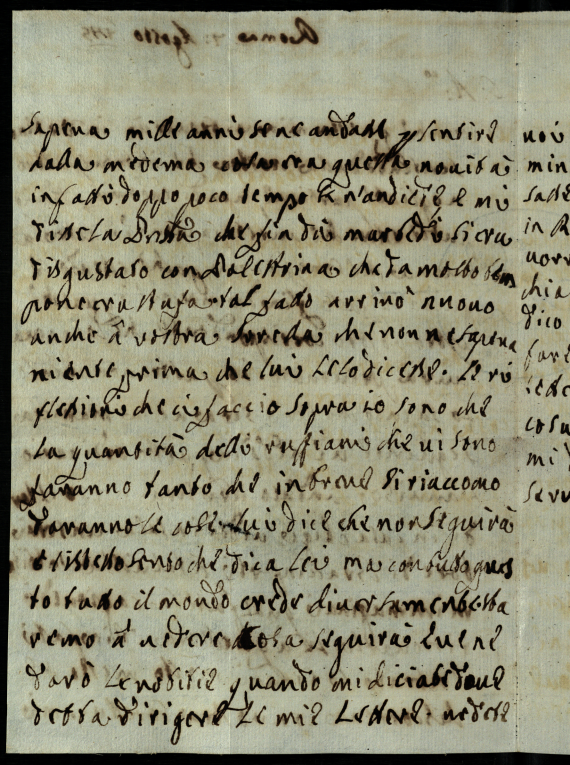 Sapeva mille anni se ne andasse p sentire
dalla medema cosa era questa novità
in fatti doppo poco tempo se n'andiede e mi
disse la che fin da martedi si era
disgustato con Palestrina che da molto tem
pone era stufa tal fado arrivò nuovo
anche à vostra sorella che non ne sapeva
niente prima che lui le lo dicesse. Le ri
flessioni che ci faccio sopra io sono che
la quantità delli ruffiani che vi sono
faranno tanto che in breve si riaccomo
daranno le cose lui dice che non seguirà
e l'istesso sento che dica lei ma con tutto ques
to tutto il mondo crede diversamente sta
remo à vedere cosa seguirà e ve ne
darò le notitie quando mi diciate dove
debba dirigere le mie lettere. vedete
voi
min
in R
chia
dico
fare
cosa
mi
serv
Roma 7 Agosto